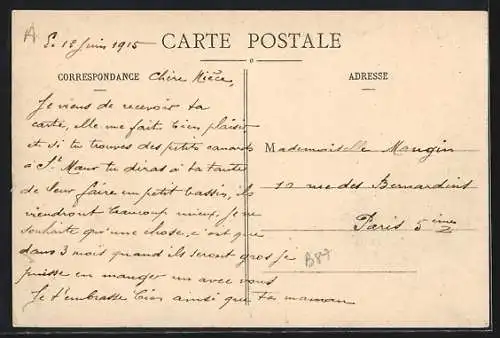 Le 12 Juin 1915
CARTE POSTALE
CORRESPONDANCE
Chère Nièce,
Je viens de recevoir ta
carte, elle me fait bien plaisir
et si tu trouves des petits canards
à St Maur tu diras à ta tante
de leur faire un petit bassin, ils
viendront beaucoup mieux. Je ne
souhaite qu'une chose, c'est que
dans 3 mois quand ils seront gros je
puisse en manger un avec vous
Je t'embrasse bien ainsi que ta maman
ADRESSE
Mademoiselle Mangin
12 rue des Bernardins
Paris 5ème
B87